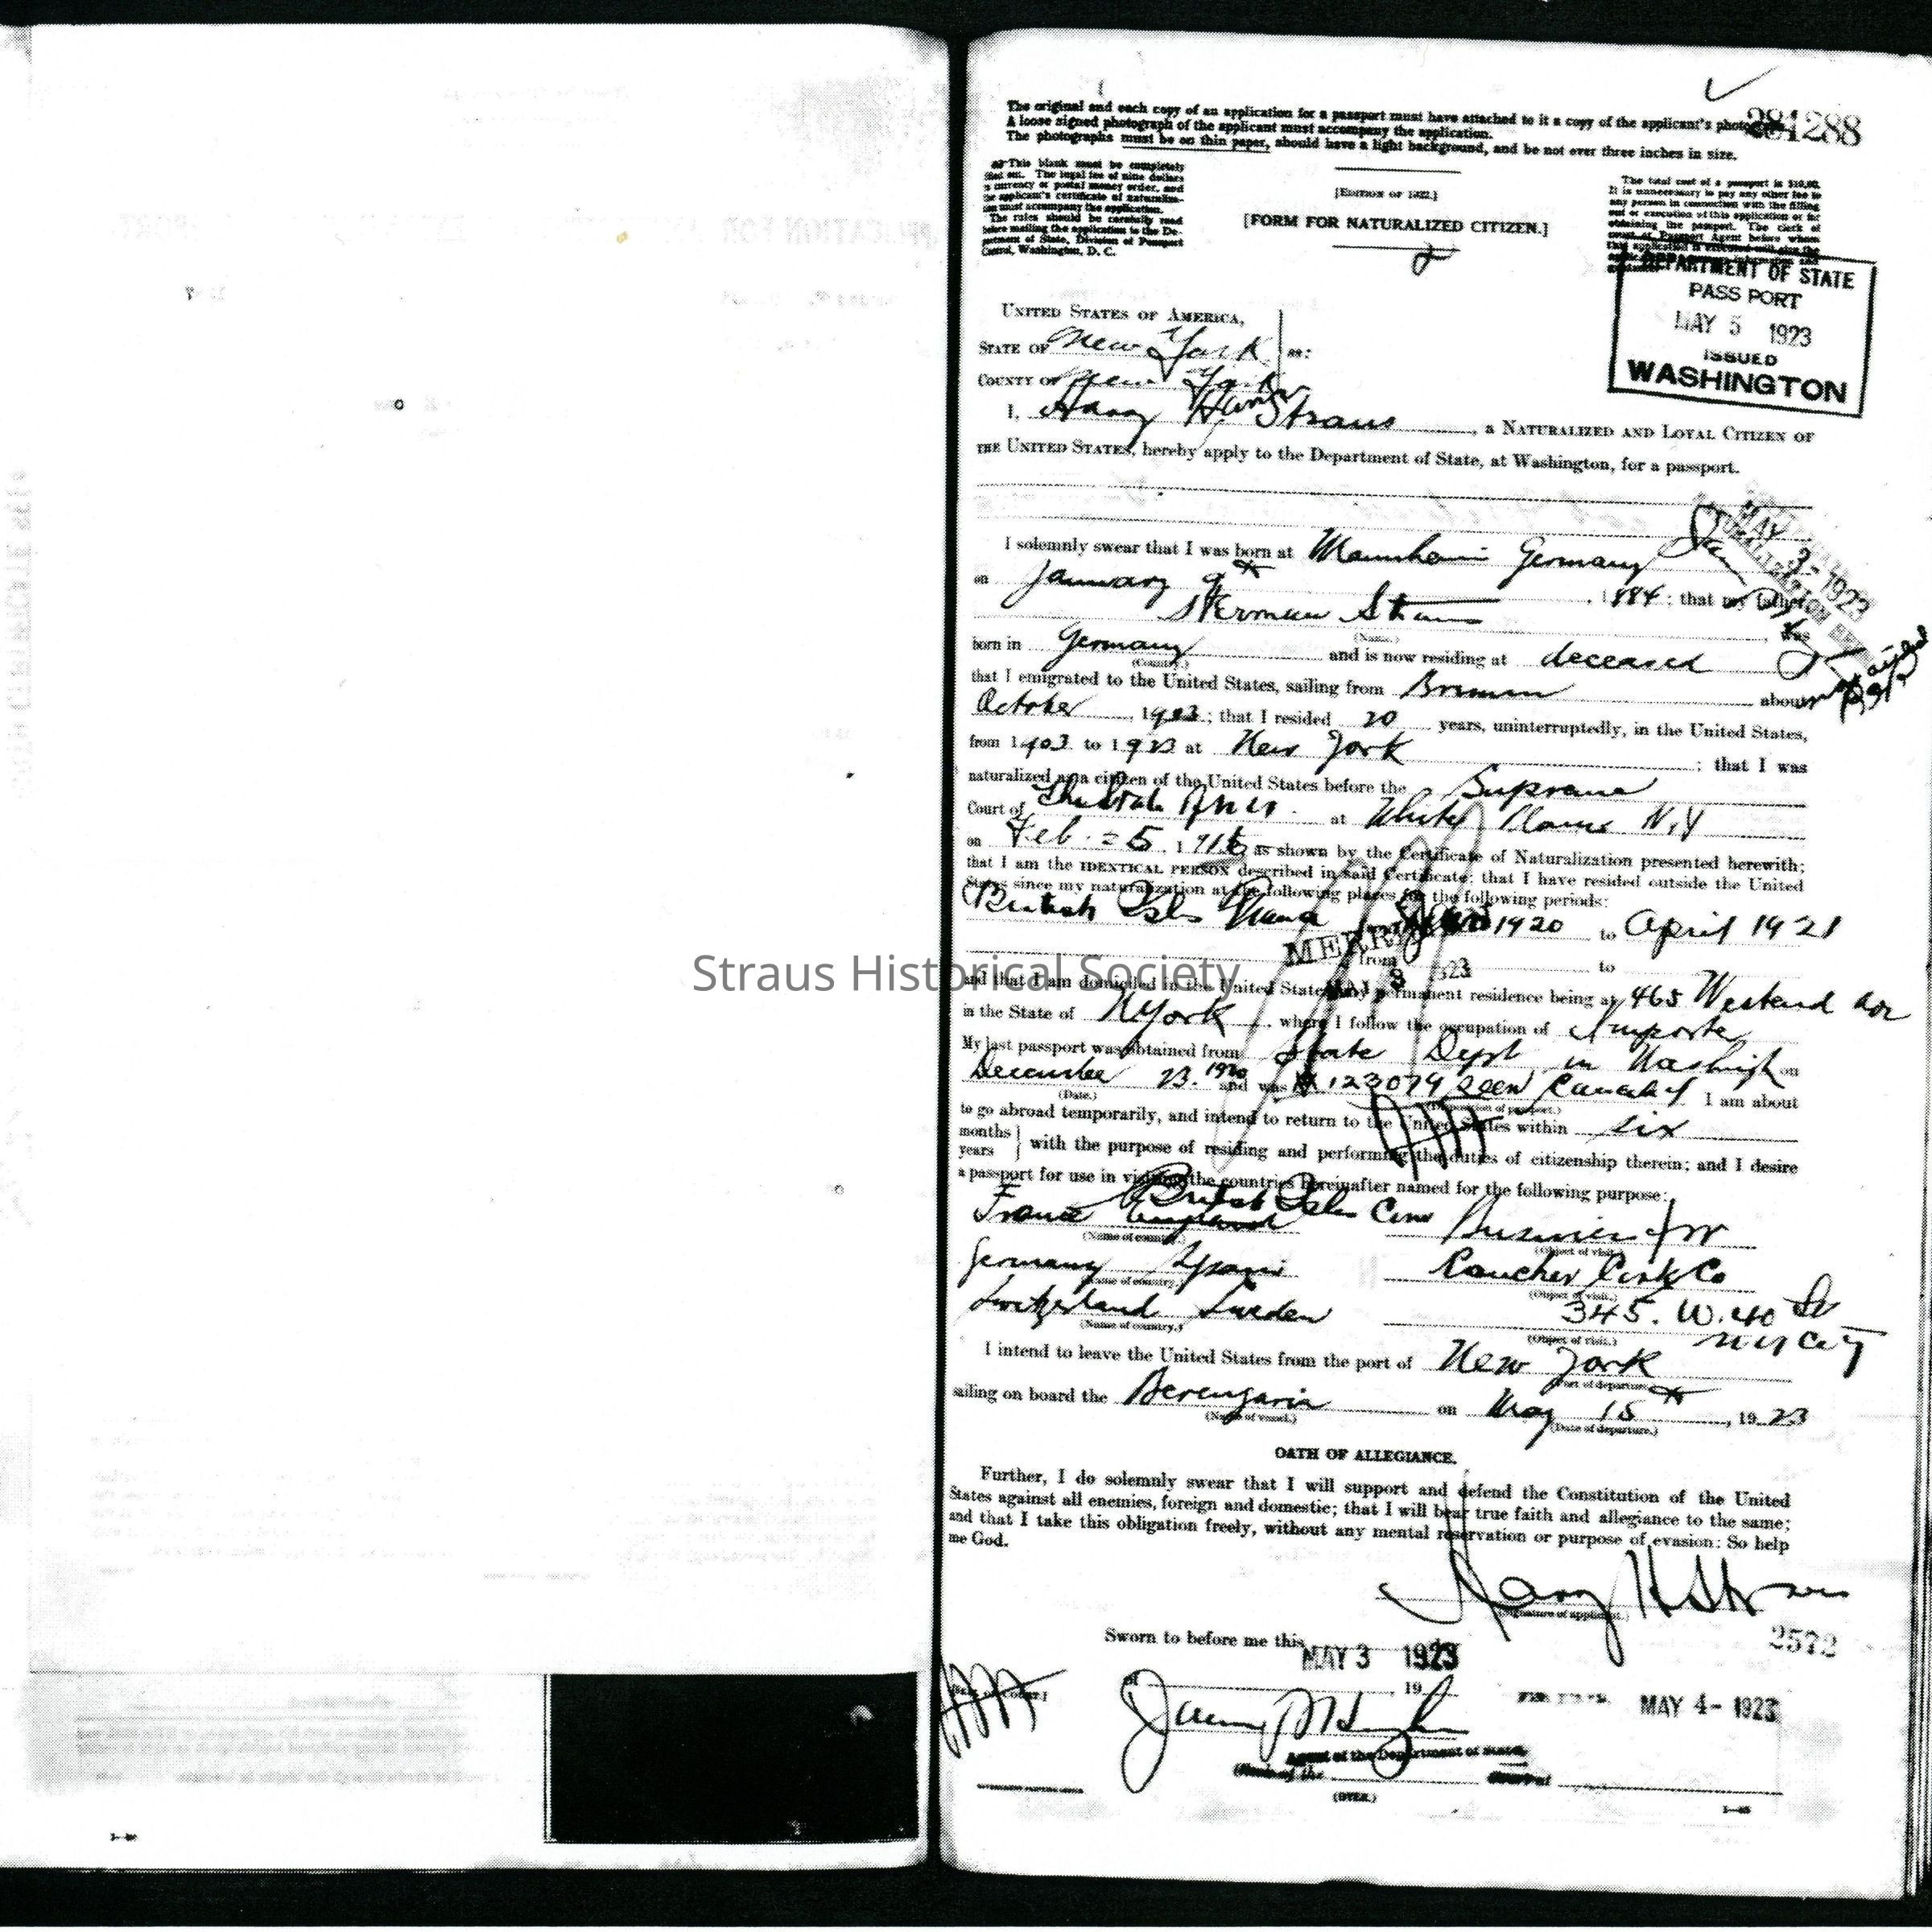 The original and each copy of an application for a passport must have attached to it a copy of the applicant's
A loose signed photograph of the applicant must accompany the application.
The photographs must be on thin paper, should have a light background, and be not over three inches in size.
284288
This blank must be completely
filled out. The legal fee of nine dollars
in currency or postal money order, and
the applicant's certificate of naturaliza-
tion must accompany the application.
The rules should be carefully read
before mailing the application to the De-
partment of State, Division of Passport
Control, Washington, D. C.
[EDITION OF 1922.]
[FORM FOR NATURALIZED CITIZEN.]
The total cost of a passport is $10.00.
It is unnecessary to pay any other fee to
any person in connection with the filling
out or execution of this application or for
obtaining the passport. The clerk of
court or Passport Agent before whom
DEPARTMENT OF STATE
PASS PORT
MAY 5 1923
ISSUED
WASHINGTON
UNITED STATES OF AMERICA,
STATE OF New York ss:
COUNTY OF New York
I, Harry H. Straus, a NATURALIZED AND LOYAL CITIZEN OF
THE UNITED STATES, hereby apply to the Department of State, at Washington, for a passport.
MAY 3- 1923
I solemnly swear that I was born at Mannheim Germany
on January 9th, 1884; that my father
Herman Straus, was
(Name.)
born in Germany and is now residing at deceased
(Country.)
that I emigrated to the United States, sailing from Bremen about
October, 1903; that I resided 20 years, uninterruptedly, in the United States,
from 1903 to 1923 at New York; that I was
naturalized as a citizen of the United States before the Supreme
Court of at White Plains N.Y
on Feb. as shown by the Certificate of Naturalization presented herewith;
that I am the IDENTICAL PERSON described in said Certificate; that I have resided outside the United
States since my naturalization at the following places for the following periods:
British Isles France 1920 to April 1921
from to
and that I am domiciled in the United States, my permanent residence being at 465 Westend Ave
in the State of N York, where I follow the occupation of Importer
My last passport was obtained from State Dept in Washington
December 23. 1920 and was # 123079 seen Cancelled I am about
(Date.)
to go abroad temporarily, and intend to return to the United States within six
months
years
with the purpose of residing and performing the duties of citizenship therein; and I desire
a passport for use in visiting the countries hereinafter named for the following purpose:
France England British Isles Business for
(Name of country.) (Object of visit.)
Germany Spain Cork Co
(Name of country.) (Object of visit.)
Switzerland Sweden 345. W. 40 St
(Name of country.) (Object of visit.)
N Y City
I intend to leave the United States from the port of New York
(Port of departure.)
sailing on board the Berengaria on May 15th, 1923
(Name of vessel.) (Date of departure.)
OATH OF ALLEGIANCE.
Further, I do solemnly swear that I will support and defend the Constitution of the United
States against all enemies, foreign and domestic; that I will bear true faith and allegiance to the same;
and that I take this obligation freely, without any mental reservation or purpose of evasion: So help
me God.
Harry H Straus
(Signature of applicant.)
2572
Sworn to before me this
MAY 3 1923
19
MAY 4- 1923
Agent of the Department of State.
(OVER.)
Straus Historical Society